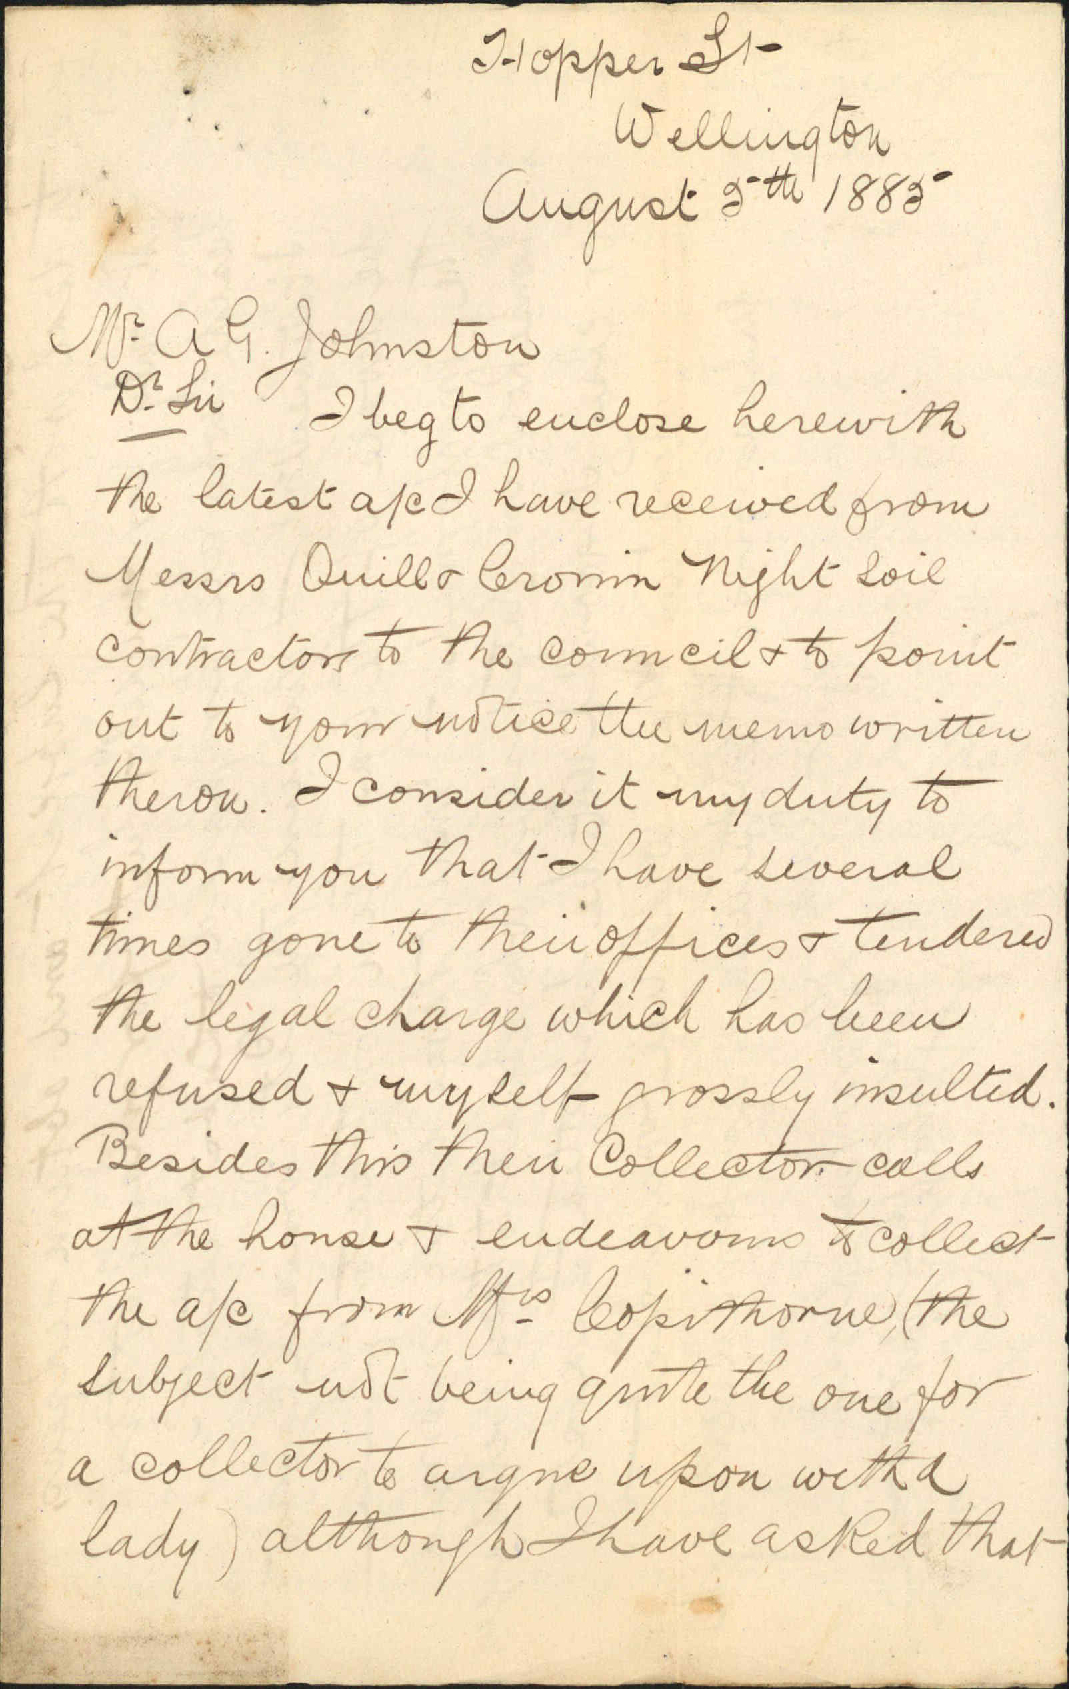 Hopper St
Wellington
August 5th 1885
Mr. A G. Johnston
Dr. Sir I beg to enclose herewith
the latest a/c I have received from
Messrs Quill & Cronin Night Soil
contractors to the council & to point
out to your notice the memo written
theron. I consider it my duty to
inform you that I have several
times gone to their offices & tendered
the legal charge which has been
refused & myself grossly insulted.
Besides this their Collector calls
at the house & endeavours to collect
the a/c from Mrs Copithorne, (the
subject not being quite the one for
a collector to argue upon with a
lady) although I have asked that